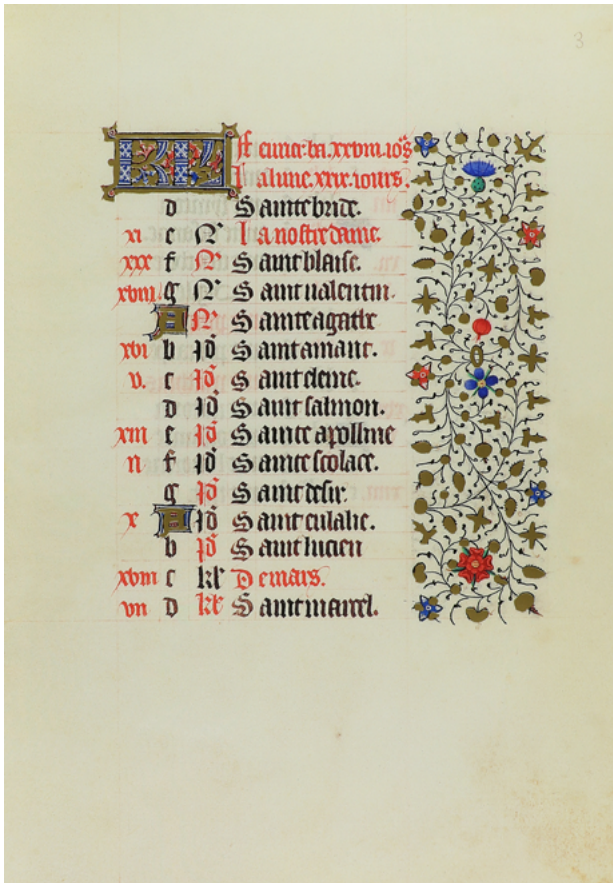 3
KL feurier. ha. xxviii. iours
La lune. xxix. iours.
d Sainte bride.
xi e N La nostre dame.
xix f N Saint blaise.
xviii. g N Saint ualentin.
A N Sainte agathe
xvi b id Saint amant.
v. c id Saint
d id Saint salmon.
xiii e id Sainte apolline
ii f id Sainte scolace.
g id Saint desir.
x A id Sainte eulalie.
b id Saint lucien
xviii c kl De mars.
vii d kl Saint marcel.